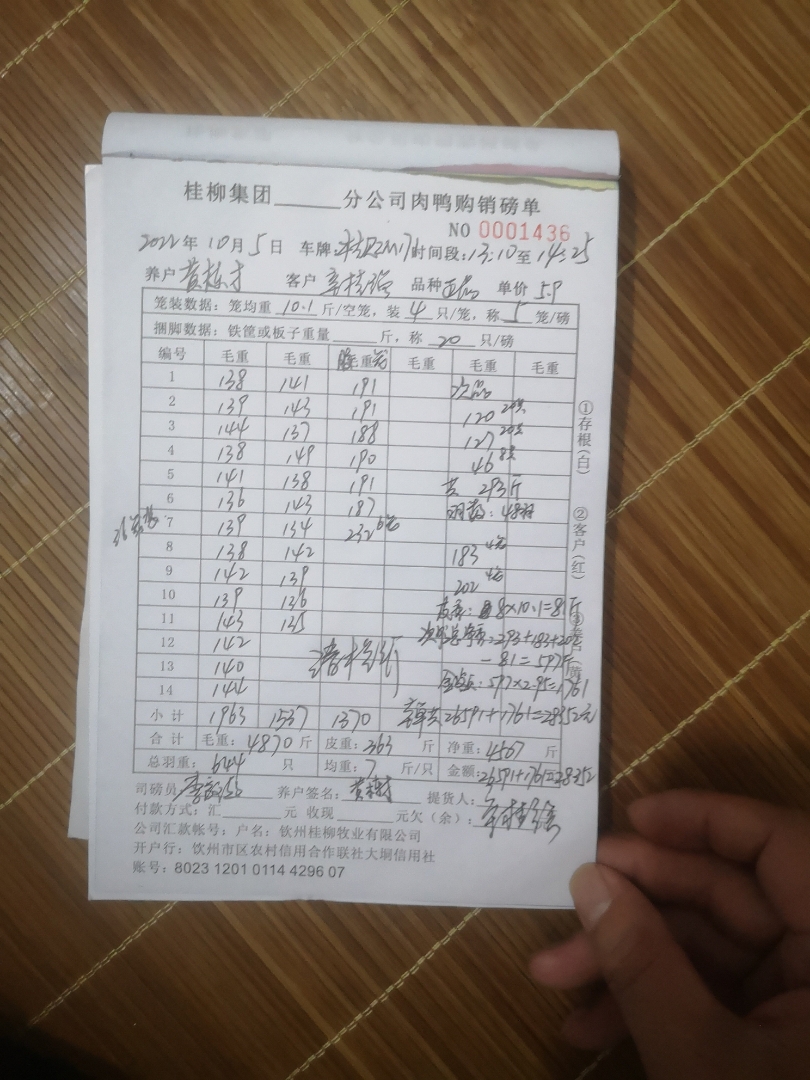 桂柳集团______分公司肉鸭购销磅单
NO 0001436
2022年10月5日 车牌: 时间段:13:10至14:25
养户 黄 客户 品种 正品 单价 5.9
笼装数据:笼均重 10.1 斤/空笼,装 4 只/笼,称 5 笼/磅
捆脚数据:铁筐或板子重量______斤,称 20 只/磅
编号 毛重 毛重 毛重 毛重 毛重 毛重
1 138 141 191 次品
2 139 143 191 120 20只
3 144 137 188 127 20只
4 138 149 190 46 8只
5 141 138 191 共 293斤
6 136 143 187 : 48羽
7 139 134 232 6笼
8 138 142 183 4笼
9 142 139 202 4笼
10 139 136 皮重: 8×10.1=81斤
11 143 135 次品总净重:293+183+202
12 142 -81=597斤
13 140 金额:597×2.95=1761
14 144
小计 1963 1537 1370 26591+1761=28352元
合计 毛重:4870斤 皮重:363 斤 净重:4507 斤
总羽重:644 只 均重:7 斤/只 金额:26591+1761=28352
司磅员: 养户签名:黄 提货人:
付款方式:汇______元 收现______元欠(余):
公司汇款帐号:户名:钦州桂柳牧业有限公司
开户行:钦州市区农村信用合作联社大垌信用社
账号:8023 1201 0114 4296 07
①存根(白)
②客户(红)